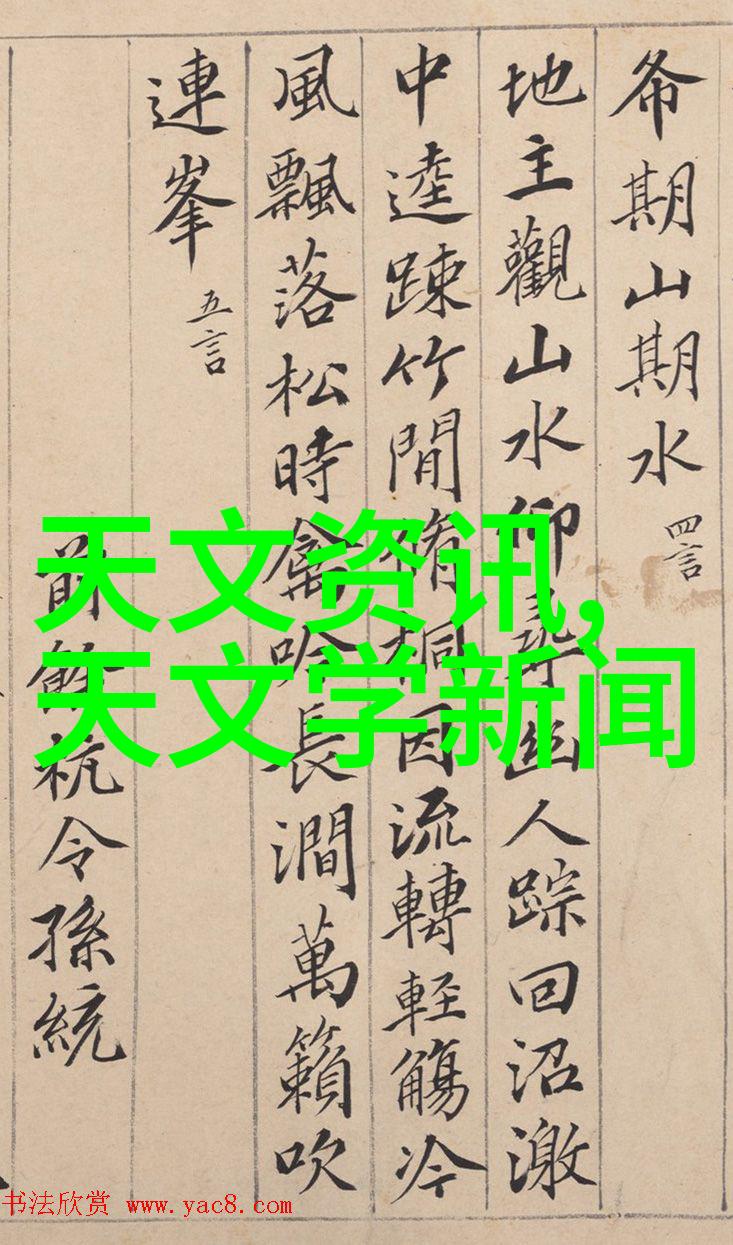 希期山期水 四言
地主觀山水仰尋幽人踪回沼激
中逵踈竹間脩桐因流轉輕觴冷
風飄落松時禽吟長澗萬籟吹
連峯 五言
前餘杭令孫統
天文资讯,
天文学新闻
书法欣赏 www.yac8.com